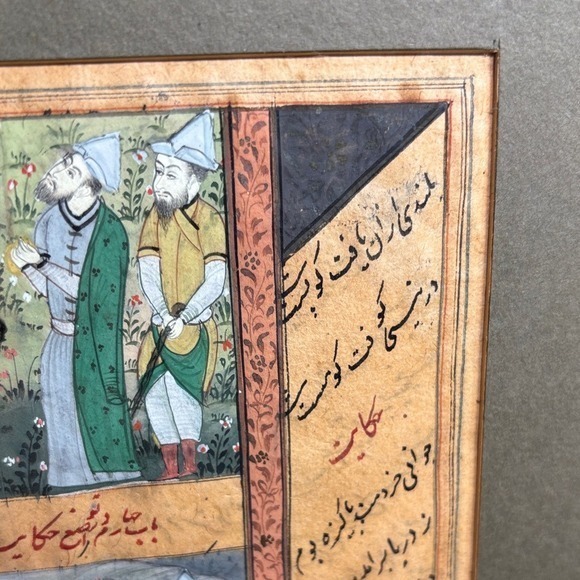 بلندی از آن یافت کو پست
در نیستی کوفت کو هست
حکایت
جوانی خردمند پاکیزه بوم
ز دریا برامد
باب چهارم در تواضع حکایت